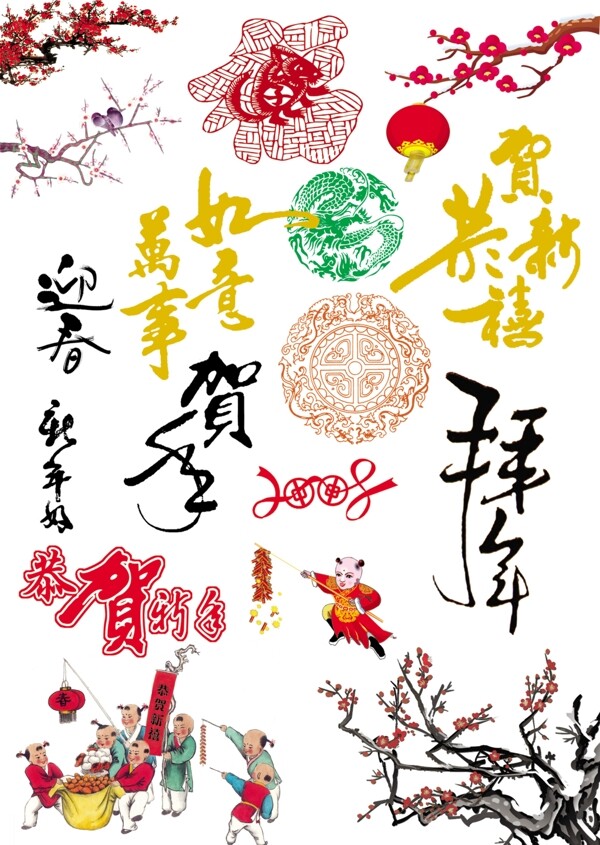 子
賀新
恭禧
如意
萬事
迎春
賀年
新年好
拜年
2008
恭賀新年
春
恭賀新禧